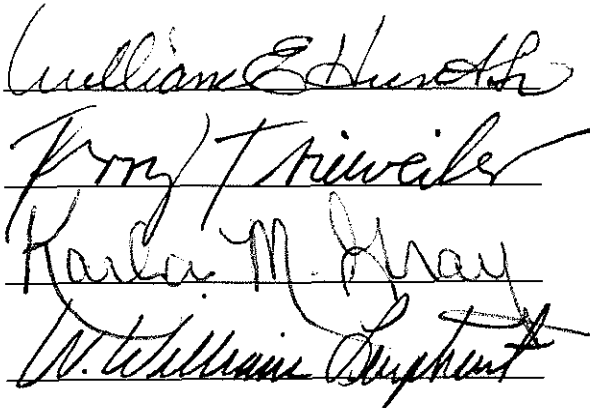 William E Hunt Sr
Terry Trieweiler
Karla M. Gray
W. William Leaphart